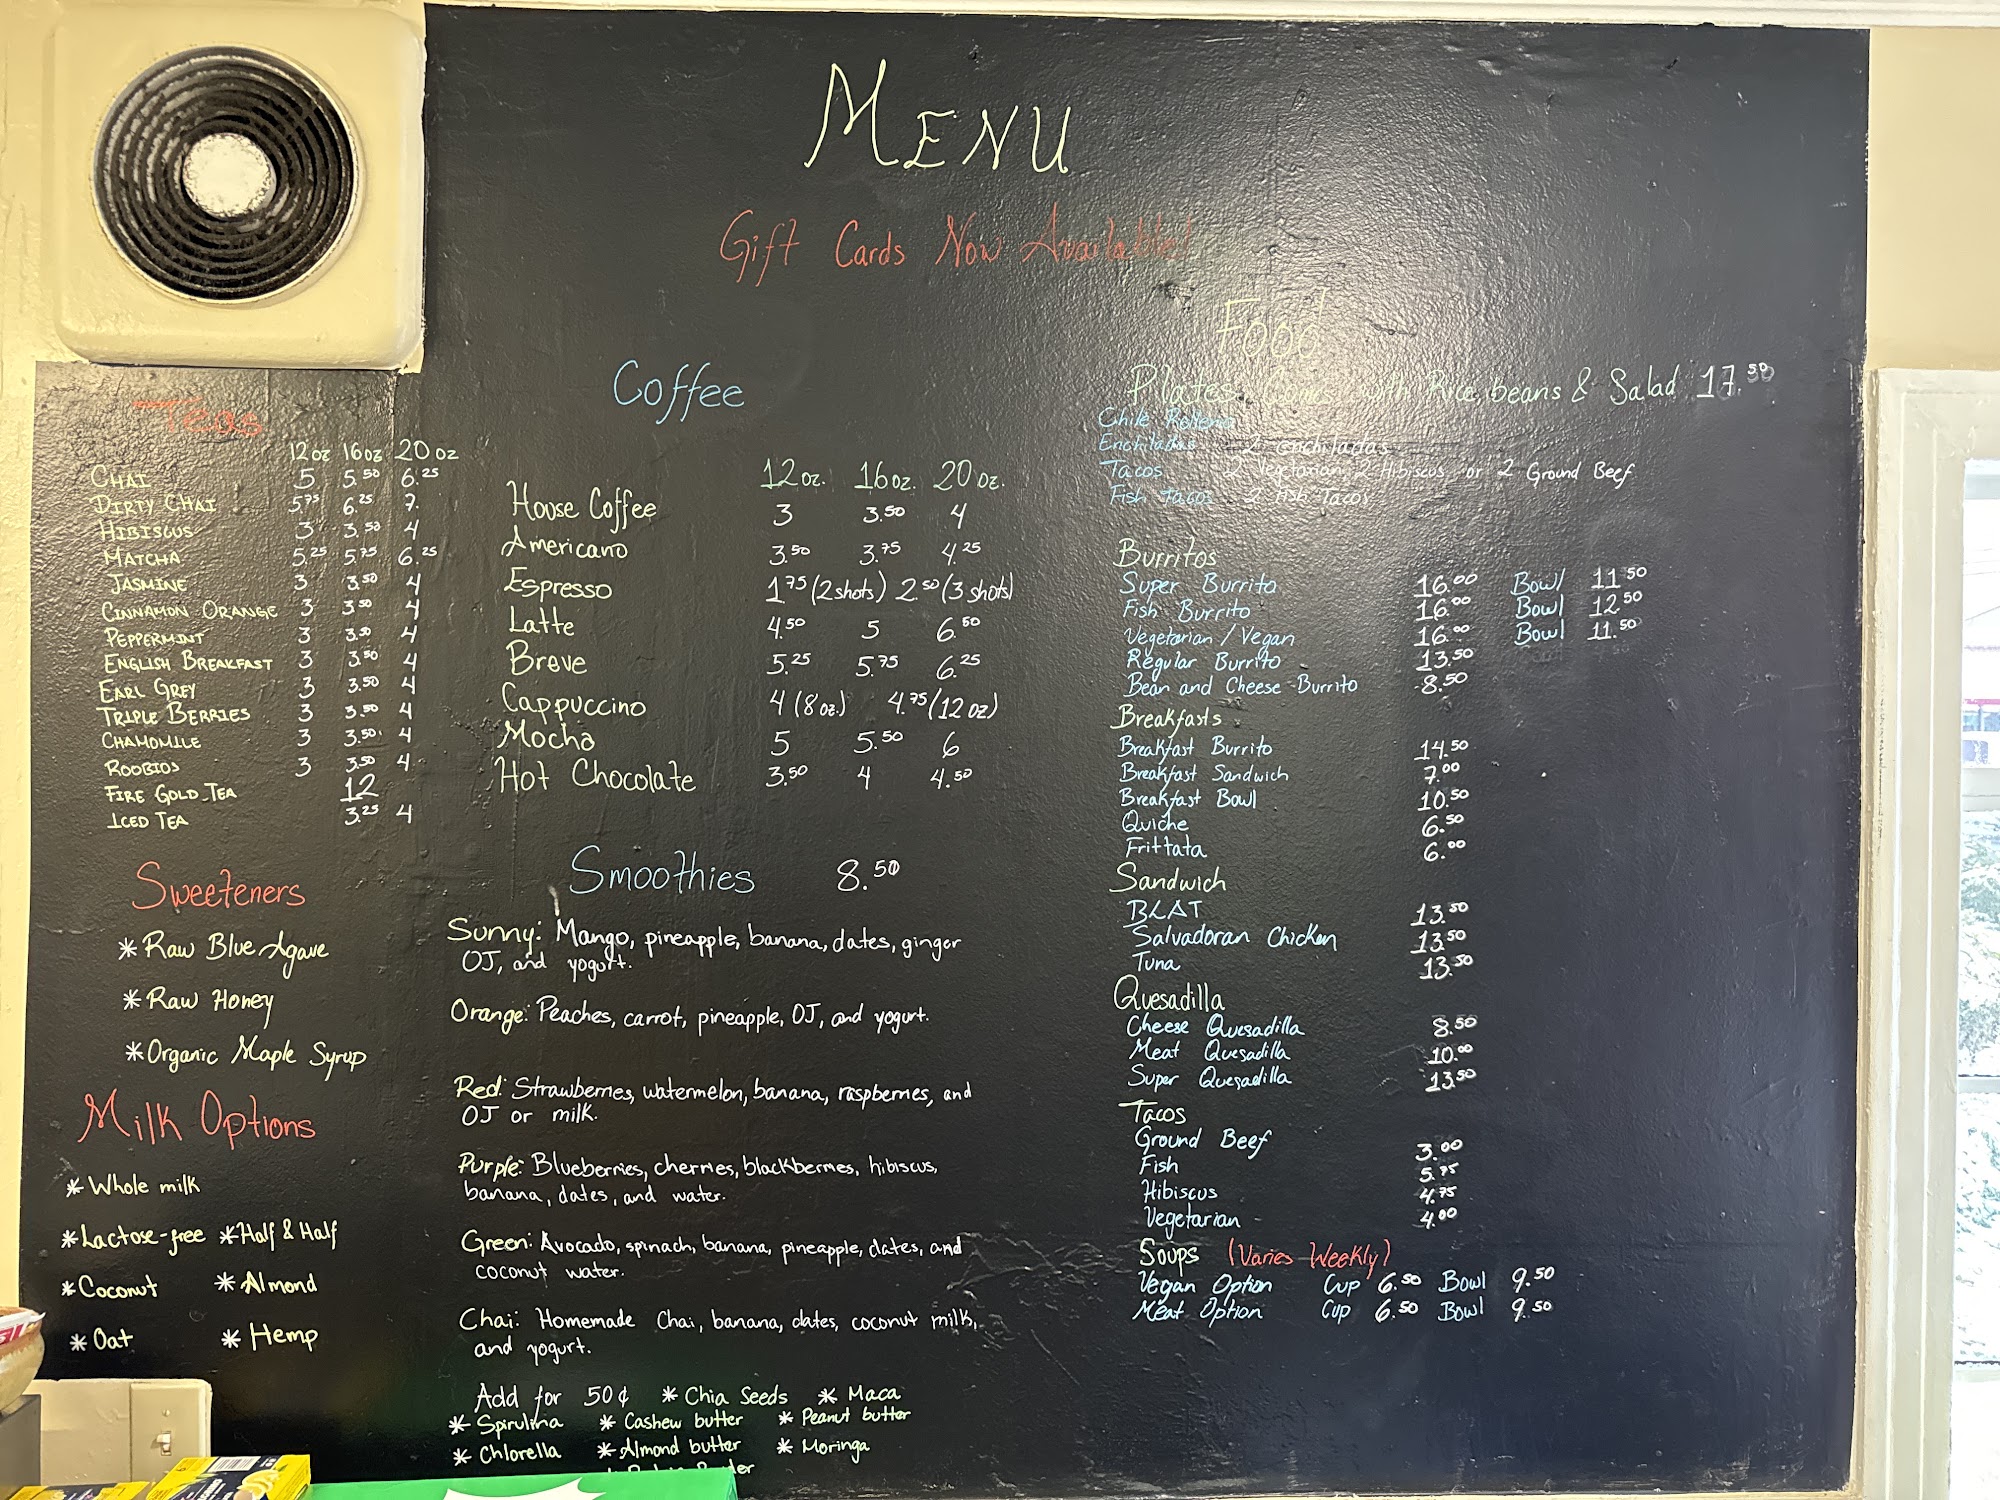 MENU
Gift Cards Now Available!
Teas
12oz 16oz 20oz
CHAI 5 5.50 6.25
DIRTY CHAI 5.75 6.25 7.
HIBISCUS 3 3.50 4
MATCHA 5.25 5.75 6.25
JASMINE 3 3.50 4
CINNAMON ORANGE 3 3.50 4
PEPPERMINT 3 3.50 4
ENGLISH BREAKFAST 3 3.50 4
EARL GREY 3 3.50 4
TRIPLE BERRIES 3 3.50 4
CHAMOMILE 3 3.50 4
ROOBIOS 3 3.50 4
FIRE GOLD TEA 12
ICED TEA 3.25 4
Sweeteners
* Raw Blue Agave
* Raw Honey
* Organic Maple Syrup
Milk Options
* Whole milk
* Lactose-free * Half & Half
* Coconut * Almond
* Oat * Hemp
Coffee
12 oz. 16 oz. 20 oz.
House Coffee 3 3.50 4
Americano 3.50 3.75 4.25
Espresso 1.75 (2 shots) 2.50 (3 shots)
Latte 4.50 5 6.50
Breve 5.25 5.75 6.25
Cappuccino 4 (8 oz.) 4.75 (12 oz)
Mocha 5 5.50 6
Hot Chocolate 3.50 4 4.50
Smoothies 8.50
Sunny: Mango, pineapple, banana, dates, ginger
OJ, and yogurt.
Orange: Peaches, carrot, pineapple, OJ, and yogurt.
Red: Strawberries, watermelon, banana, raspberries, and
OJ or milk.
Purple: Blueberries, cherries, blackberries, hibiscus,
banana, dates, and water.
Green: Avocado, spinach, banana, pineapple, dates, and
coconut water.
Chai: Homemade Chai, banana, dates, coconut milk,
and yogurt.
Add for 50¢ * Chia Seeds * Maca
* Spirulina * Cashew butter * Peanut butter
* Chlorella * Almond butter * Moringa
Food
Plates Come with Rice, beans & Salad 17.50
Chile Relleno
Enchiladas 2 enchiladas
Tacos 2 Vegetarian, 2 Hibiscus or 2 Ground Beef
Fish Tacos 2 Fish Tacos
Burritos
Super Burrito 16.00 Bowl 11.50
Fish Burrito 16.00 Bowl 12.50
Vegetarian / Vegan 16.00 Bowl 11.50
Regular Burrito 13.50
Bean and Cheese Burrito 8.50
Breakfasts
Breakfast Burrito 14.50
Breakfast Sandwich 7.00
Breakfast Bowl 10.50
Quiche 6.50
Frittata 6.00
Sandwich
BLAT 13.50
Salvadoran Chicken 13.50
Tuna 13.50
Quesadilla
Cheese Quesadilla 8.50
Meat Quesadilla 10.00
Super Quesadilla 13.50
Tacos
Ground Beef 3.00
Fish 5.75
Hibiscus 4.75
Vegetarian 4.00
Soups (Varies Weekly)
Vegan Option Cup 6.50 Bowl 9.50
Meat Option Cup 6.50 Bowl 9.50